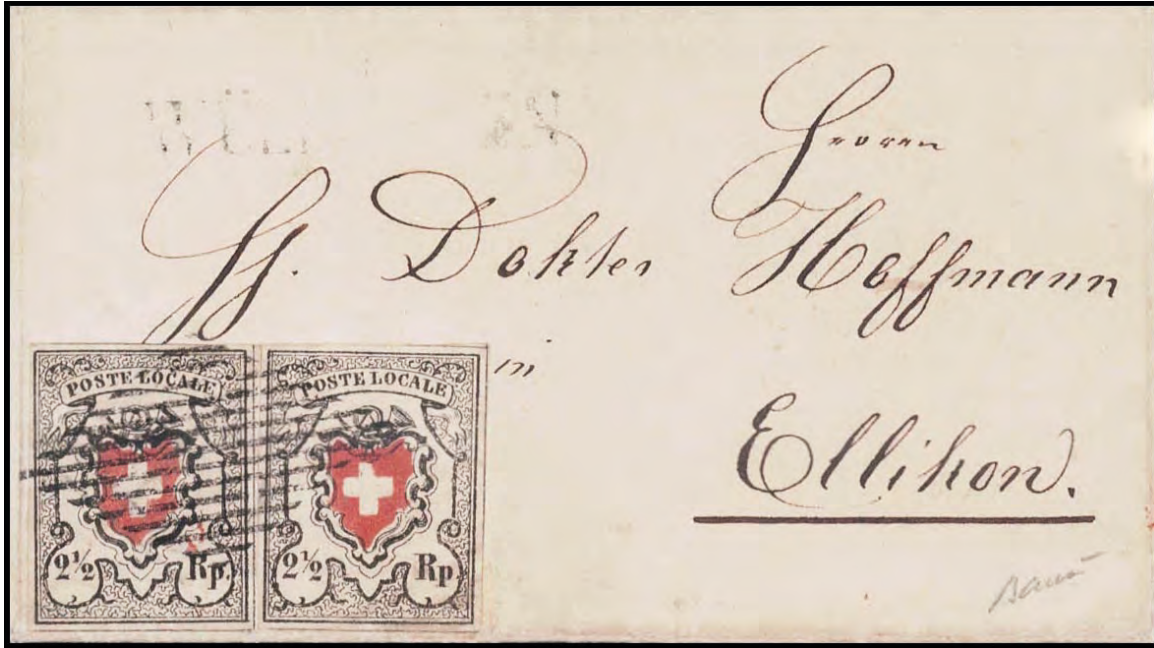 Herren
H. Dokter Hoffmann
in
Ellikon.
POSTE LOCALE POSTE LOCALE
2½ Rp. 2½ Rp.